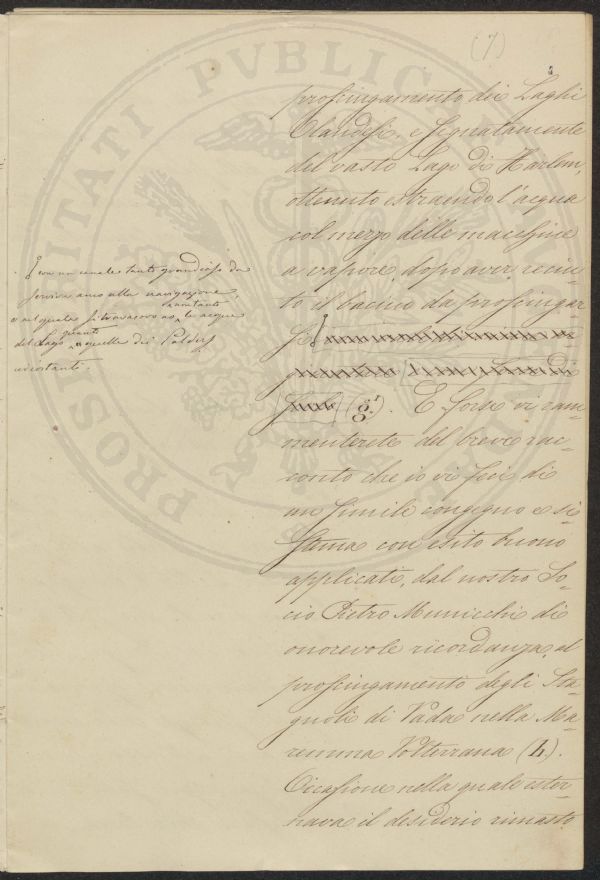 (7)
prosciugamento dei Laghi
Olandesi, e segnatamente
del vasto Lago di Harlem,
ottenuto estraendo l'acqua
col mezzo delle macchine
a vapore, dopo aver recin-
to il bacino da prosciugar-
si
(g'). E forse vi ram-
menterete del breve rac-
conto che io vi feci di
un simile congegno e si-
stema con esito buono
applicati, dal nostro So-
cio Pietro Municchi di
onorevole ricordanza, al
prosciugamento degli Sta-
gnoli di Vada nella Ma-
remma Volterrana (h).
Occasione nella quale ester-
nava il desiderio rimasto
con un canale tanto grandioso da
servire anco alla navigazione,
e nel quale si trovarono no, tanto le acque
del Lago, quanto quelle dei Polders
circostanti.
PROSPERITATI PVBLICAE